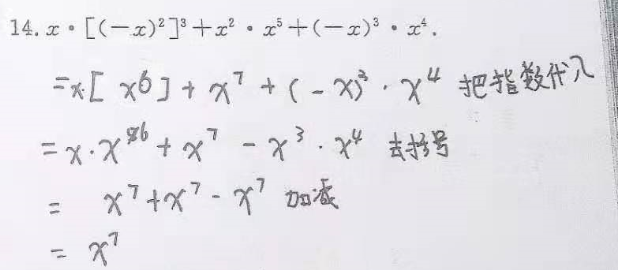 14. x·[(-x)²]³+x²·x⁵+(-x)³·x⁴.
=x·[x⁶]+x⁷+(-x)³·x⁴ 把指数代入
=x·x⁶+x⁷-x³·x⁴ 去括号
= x⁷+x⁷-x⁷ 加减
= x⁷